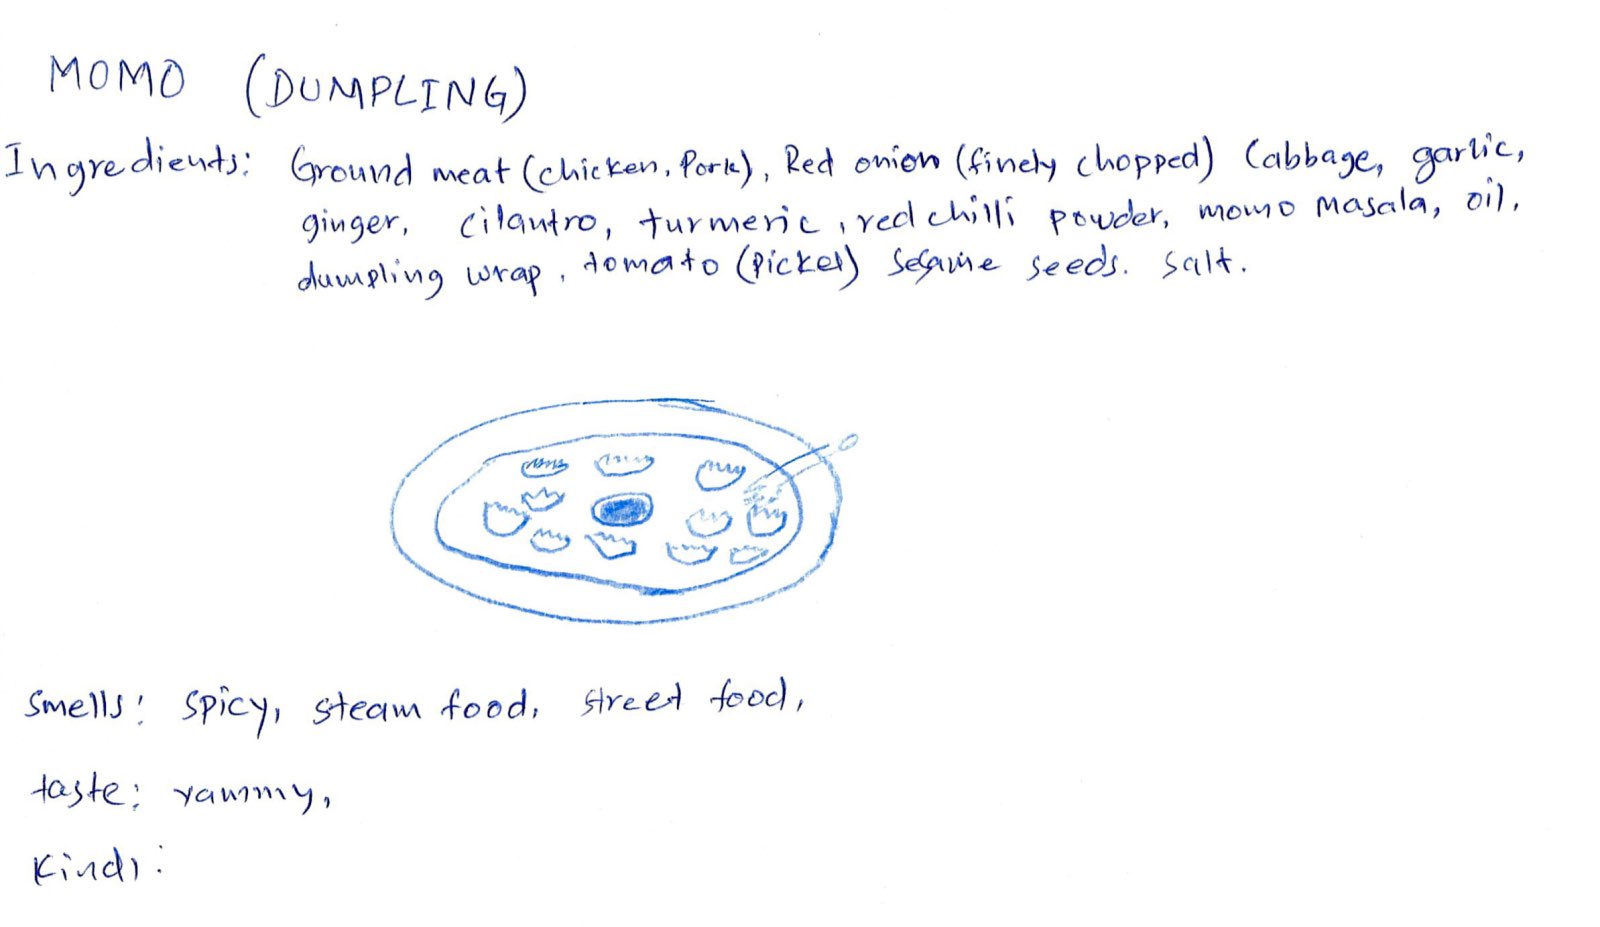 MOMO (DUMPLING)
Ingredients: Ground meat (chicken, Pork), Red onion (finely chopped) Cabbage, garlic,
ginger, cilantro, turmeric, red chilli powder, momo masala, oil,
dumpling wrap, tomato (Pickel) Sesame seeds. salt.
Smells: spicy, steam food, street food,
taste: yammy,
Kinds: